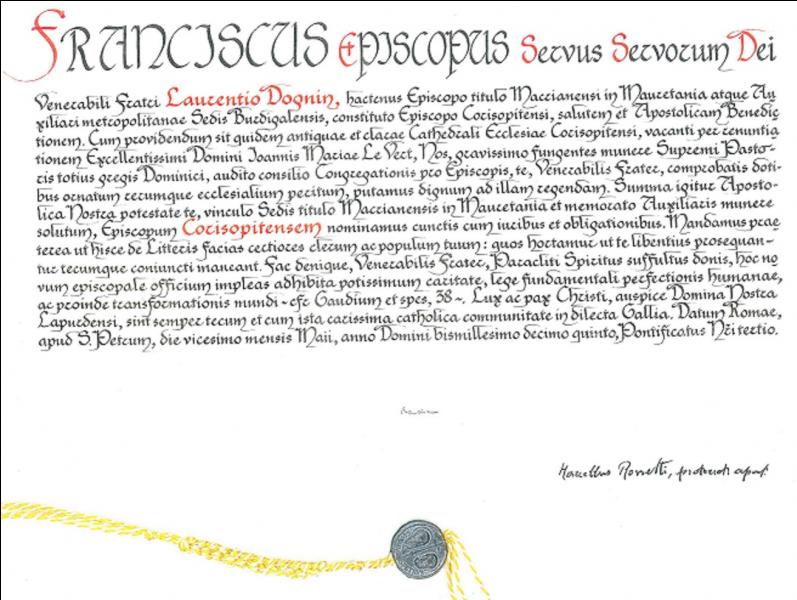 FRANCISCUS EPISCOPUS Servus Servorum Dei
Venerabili Fratri Laurentio Dognin, hactenus Episcopo titulo Maccrianensi in Mauretania atque Au
xiliari metropolitanae Sedis Burdigalensis, constituto Episcopo Corisopitensi, salutem et Apostolicam Benedic
tionem. Cum providendum sit quidem antiquae et clarae Cathedrali Ecclesiae Corisopitensi, vacanti per renuntia
tionem Excellentissimi Domini Ioannis Mariae Le Vert, Nos, gravissimo fungentes munere Supremi Pasto-
ris totius gregis Dominici, audito consilio Congregationis pro Episcopis, te, Venerabilis Frater, comprobatis doti-
bus ornatum rerumque ecclesialium peritum, putamus dignum ad illam regendam. Summa igitur Aposto-
lica Nostra potestate te, vinculo Sedis titulo Macrianensis in Mauretania et memorato Auxiliaris munere
solutum, Episcopum Corisopitensem nominamus cunctis cum iuribus et obligationibus. Mandamus prae
terea ut hisce de Litteris facias certiores clerum ac populum tuum: quos hortamur ut te libentius prosequan-
tur tecumque coniuncti maneant. Fac denique, Venerabilis Frater, Paracliti Spiritus suffultus donis, hoc no
vum episcopale officium impleas adhibita potissimum caritate, lege fundamentali perfectionis humanae,
ac proinde transformationis mundi - cfr Gaudium et spes, 38 -. Lux ac pax Christi, auspice Domina Nostra
Lapurdensi, sint semper tecum et cum ista carissima catholica communitate in dilecta Gallia. Datum Romae,
apud S. Petrum, die vicesimo mensis Maii, anno Domini bismillesimo decimo quinto, Pontificatus Nri tertio.